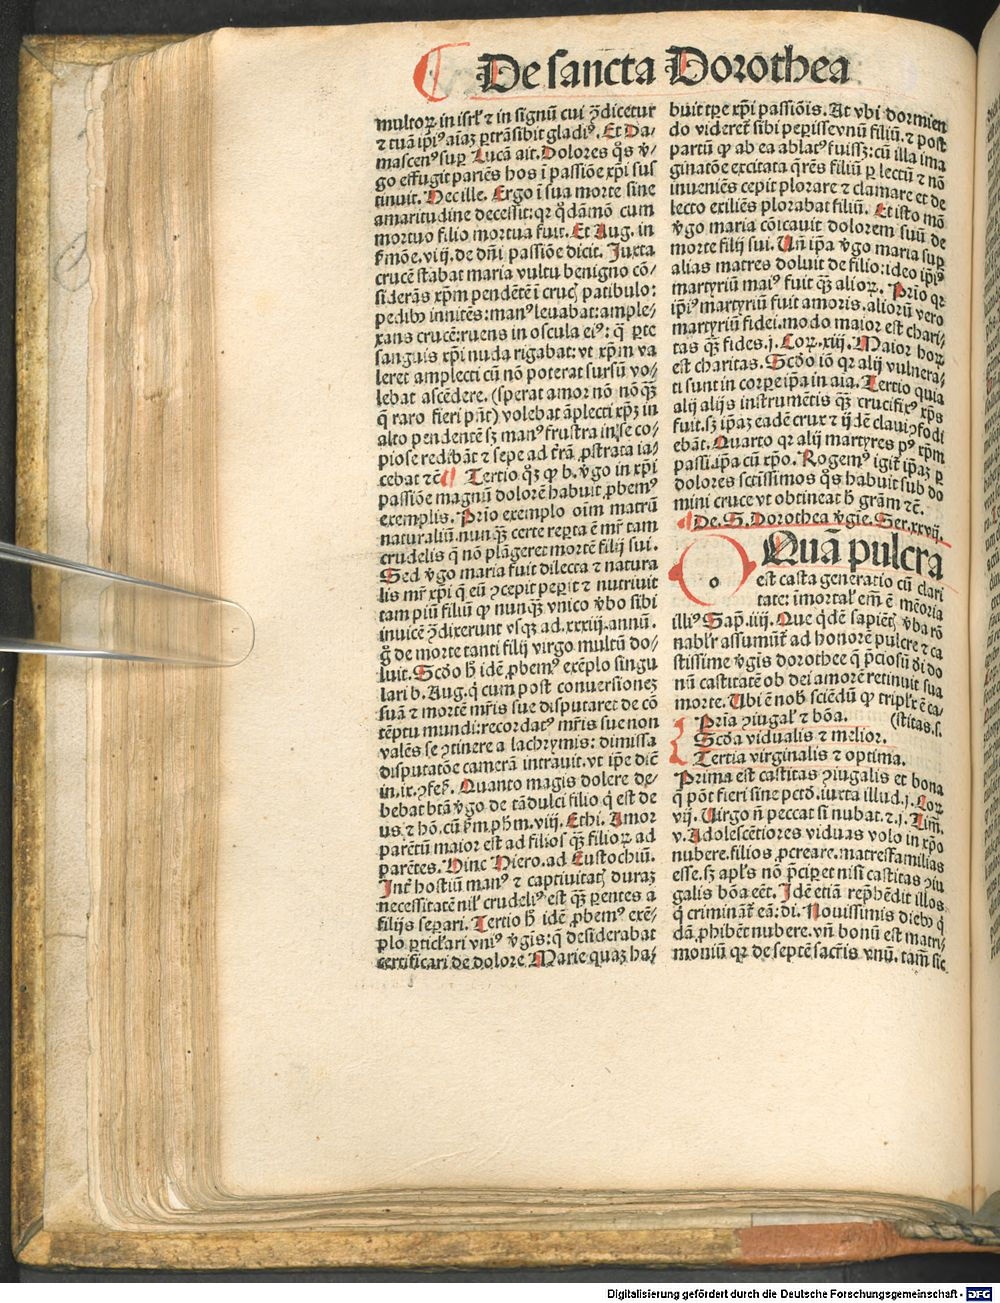 De sancta Dorothea
multoꝝ in isrl̄ ⁊ in signū cui ꝯdicetur
⁊ tuā ip̄iꝰ aīaꝫ ꝑtrāsibit gladiꝰ. Et Da⸗
mascenꝰ suꝑ Lucā ait. Dolores q̄s v̄⸗
go effugit pariēs hos ī passiōe xp̄i sus
tinuit. Hec ille. Ergo ī sua morte sine
amaritudine decessit: qꝛ q̇dāmō cum
mortuo filio mortua fuit. Et Aug. in
ẜmōe. vi ij. de dn̄i passiōe dicit. Juxta
crucē stabat maria vultu benigno cō⸗
siderās xp̄m pendētē ī crucꝭ patibulo:
pedibꝰ innitēs: manꝰ leuabat: ample⸗
xans crucē: ruens in oscula eiꝰ: q̄ ꝑte
sanguis xp̄i nuda rigabat: vt xp̄m va
leret amplecti cū nō poterat sursū vo⸗
lebat ascēdere. (sperat amor nō nō qꝫ̄
q̄ raro fieri pn̄t) volebat āplecti xp̄ꝫ in
alto pendentē sꝫ manꝰ frustra in se co⸗
piose redibāt ⁊ sepe ad t̄rā ꝓstrata ia⸗
cebat ⁊c̄ ¶ Tertio qꝫ̇ ꝙ b. v̄go in xp̄i
passiōe magnū dolorē habuit ꝓbemꝰ
exemplis. Prīo exemplo oīm matrū
naturaliū. nunqꝫ̄ certe reꝑta ē mr̄ tam
crudelis q̄ nō plāgeret mortē filij sui.
Sed v̄go maria fuit dilecta ⁊ natura
lis mr̄ xp̄i q̄ eū ꝯcepit peꝑit ⁊ nutriuit
tam piū filiū ꝙ nunqꝫ̄ vnico v̄bo sibi
inuicē ꝯdixerunt vsqꝫ ad. xxxiij. annū.
g̊ de morte tanti filij virgo multū do⸗
luit. Scd̄o h̄ idē ꝓbemꝰ exēplo singu
lari b. Aug. q̇ cum post conversioneꝫ
suā ⁊ mortē mr̄is sue disputaret de cō
tēptu mundi: recordatꝰ mr̄is sue non
valēs se ꝯtinere a lachrymis: dimissa
disputatōe camerā intrauit. vt ip̄e dic̄
in. ix. ꝯfeꝭ. Quanto magis dolere de⸗
bebat btā v̄go de tā dulci filio q̇ est de
us ⁊ hō. cū ẜm. ph̄m. viij. Ethi. Amor
parētū maior est ad filios qꝫ̄ filioꝝ ad
parētes. Hinc Hiero. ad Eustochiū.
Int̄ hostiū manꝰ ⁊ captiuitatꝭ duraꝫ
necessitatē nil̄ crudeliꝰ est qꝫ̄ ꝑentes a
filijs seꝑari. Tertio h̄ idē ꝓbemꝰ exē⸗
plo ꝑticl̄ari vniꝰ v̄gīs: q̄ desiderabat
certificari de dolore Marie quaꝫ ha⸗
buit tꝑe xp̄i passiōis. At vbi dormien
do videret̄ sibi peꝑisse vnū filiū. ⁊ post
partū ꝙ ab ea ablatꝰ fuissꝫ: cū illa ima
ginatōe excitata q̄rēs filiū ꝑ lectū ⁊ nō
inueniēs cepit plorare ⁊ clamare et de
lecto exiliēs plorabat filiū. Et isto mō
v̄go maria cōicauit dolorem suū de
morte filij sui. Vn̄ ip̄a v̄go maria suꝑ
alias matres doluit de filio: ideo ip̄iꝰ
martyriū maiꝰ fuit qꝫ̄ alioꝝ. Prīo qꝛ
ip̄iꝰ martyriū fuit amoris. alioꝝ vero
martyriū fidei. modo maior est chari⸗
tas qꝫ̄ fides. j. Coꝝ. xiij. Maior hoꝝ
est charitas. Scd̄o iō qꝛ alij vulnera⸗
ti sunt in corꝑe ip̄a in aīa. Tertio quia
alij alijs instrumētis qꝫ̄ crucifixꝰ xp̄s
fuit. sꝫ ip̄aꝫ eadē crux ⁊ ijdē claui ꝯfodi
ebāt. Quarto qꝛ alij martyres pꝰ xp̄m
passi. ip̄a cū xp̄o. Rogemꝰ igit̄ ip̄aꝫ ꝑ
dolores sctissimos q̄s habuit sub do
mini cruce vt obtineat h̄ grām ⁊c̄.
¶ De. S. Dorothea v̄gīe. Ser. xxvij.
o Quā pulcra
est casta generatio cū clari
tate: īmortal̄ em̄ ē mēoria
illiꝰ Sap̄. iiij. Que q̇dē sapiētꝭ v̄ba rō
nabl̄r assumūt̄ ad honorē pulcre ⁊ ca
stissime v̄gīs dorothee q̄ p̄ciosū dī do
nū castitatē ob dei amorē retinuit sua
morte. Ubi ē nob̄ sciēdū ꝙ tripl̄r ē ca⸗
Prīa ꝯiugal̄ ⁊ bōa. (stitas. s.
Scd̄a vidualis ⁊ melior.
Tertia virginalis ⁊ optima.
Prima est castitas ꝯiugalis et bona
q̄ pōt fieri sine pctō. iuxta illud. j. Coꝝ
vij. Virgo n̄ peccat si nubat. ⁊. j. Tim̄.
v. Adolescētiores viduas volo in xp̄o
nubere. filios ꝓcreare. matresfamilias
esse. sꝫ apl̄s nō p̄ciꝑet nisi castitas ꝯiu
galis bōa eēt. Idē etiā rep̄hēdit illos
q̇ crimināt̄ eā: dī. Nouissimis diebꝰ q̇
dā ꝓhibēt nubere. vn̄ bonū est matri⸗
moniū qꝛ de septē sacr̄is vnū. tam̄ sic
Digitalisierung gefördert durch die Deutsche Forschungsgemeinschaft - DFG